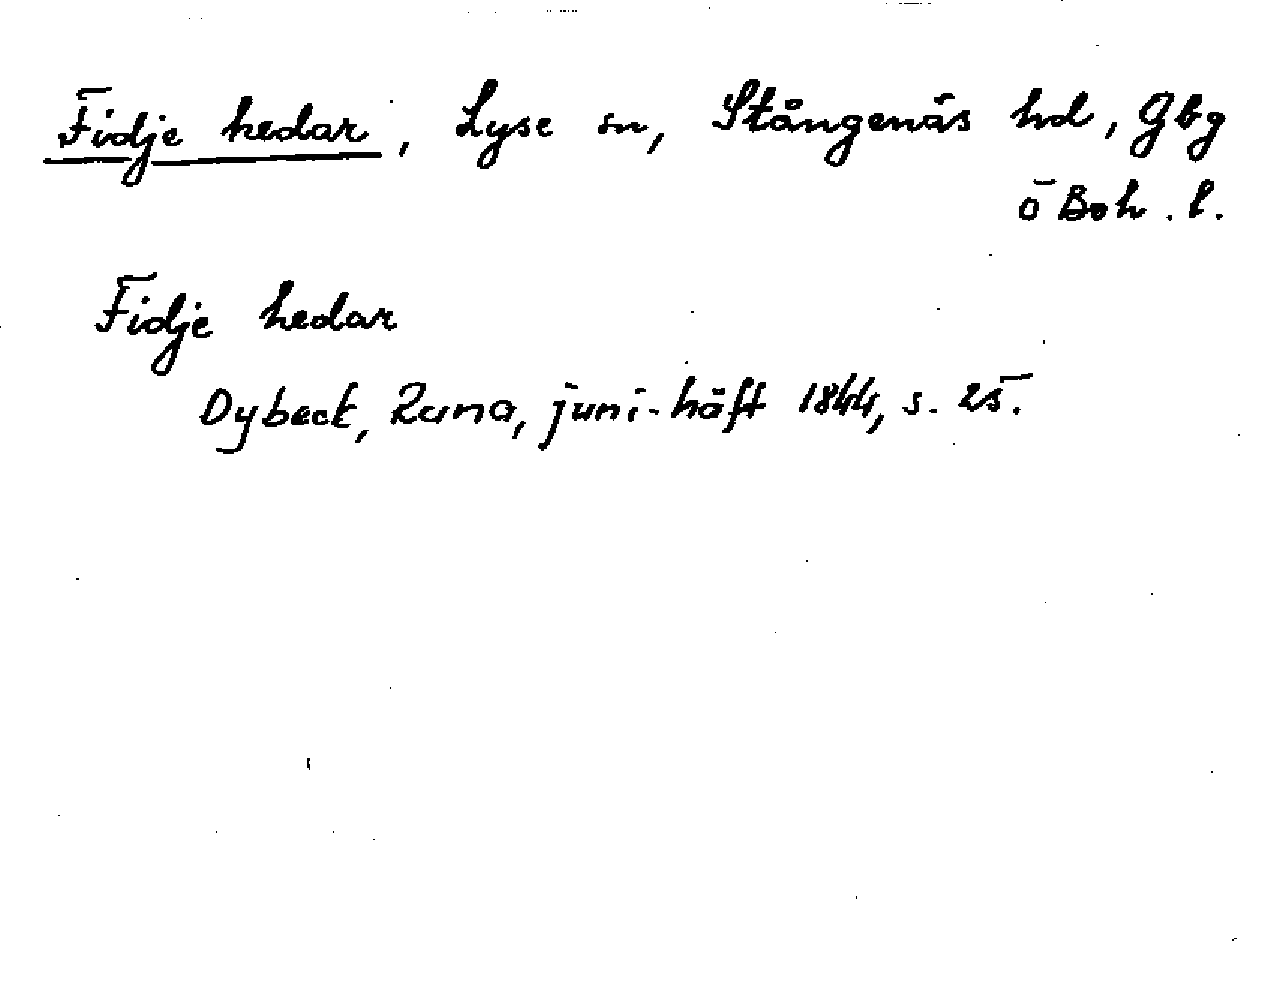 Fidje hedar, Lyse sn, Stångenäs hd, Gbg
o Boh. l.
Fidje hedar
Dybeck, Runa, juni-häft 1844, s. 25.